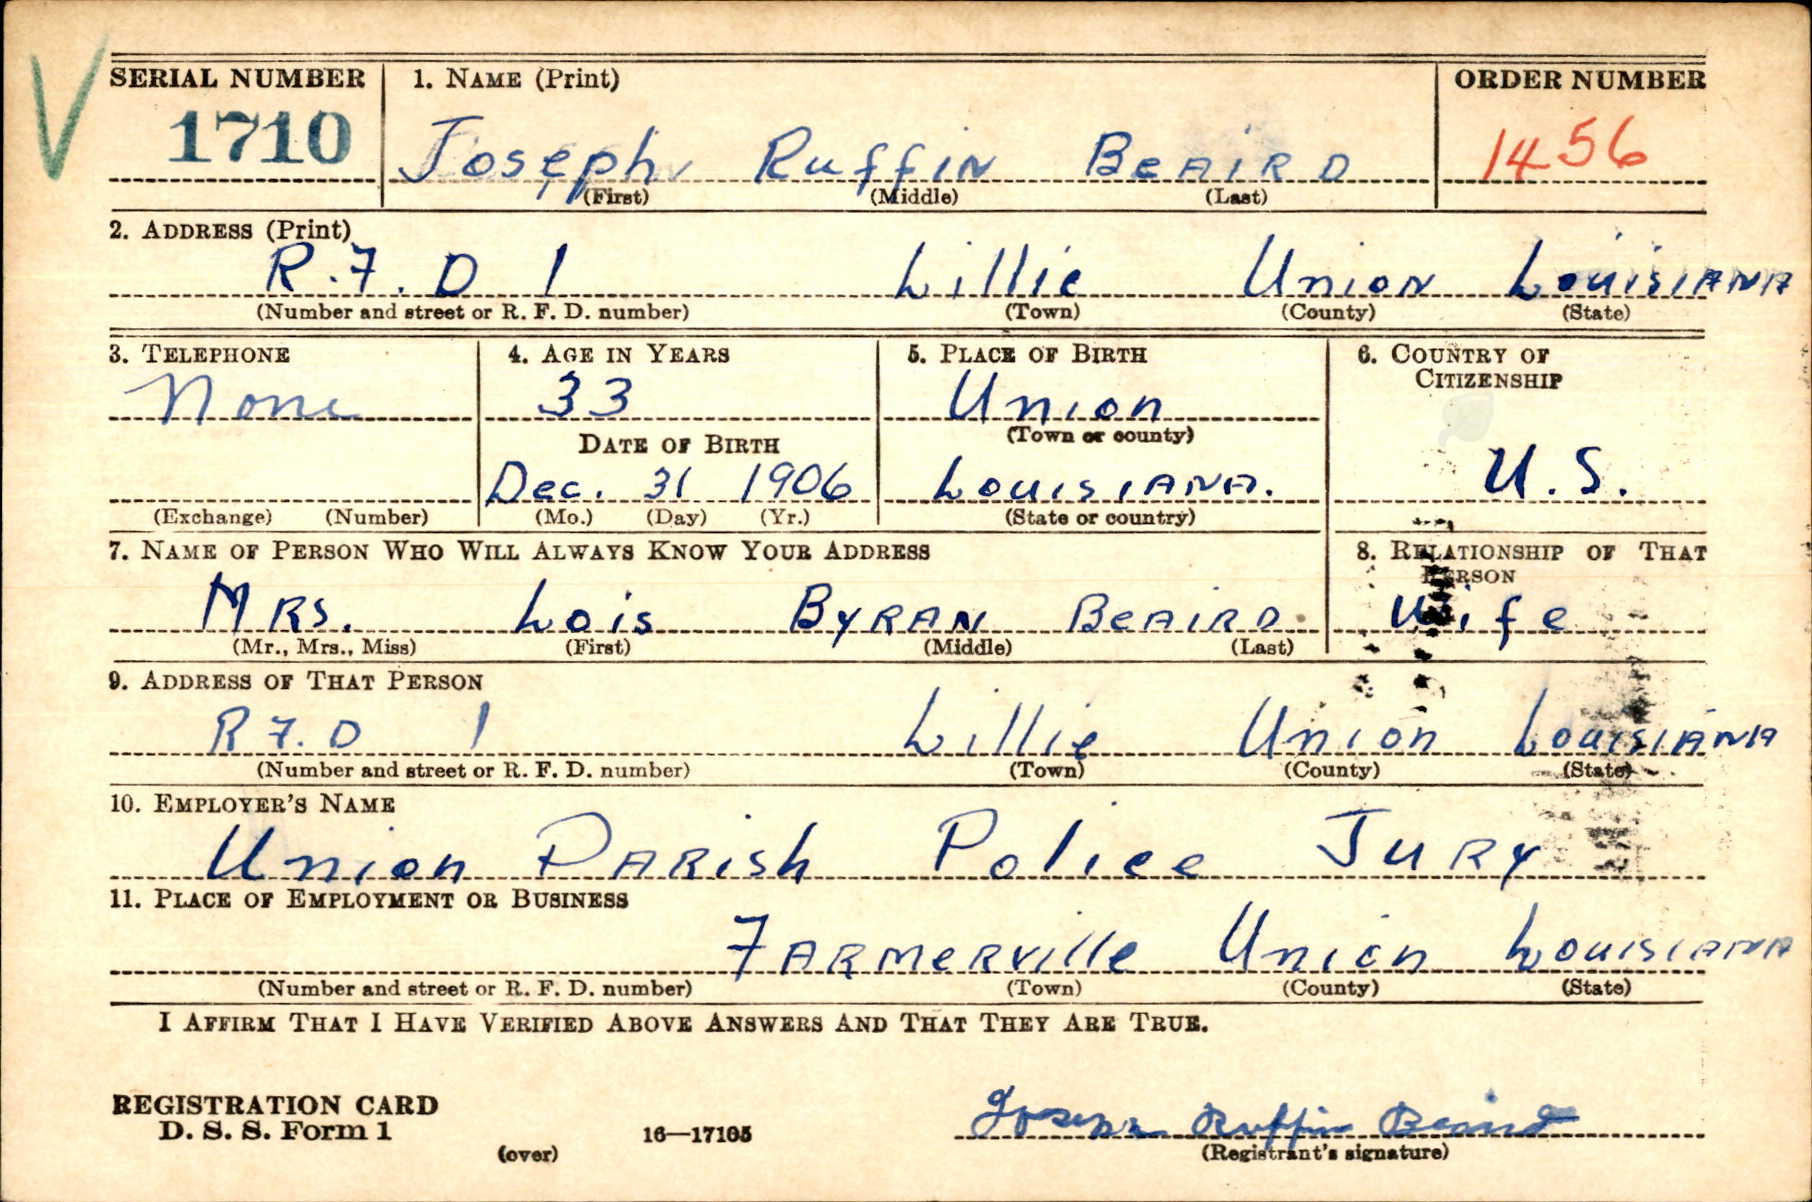 V
SERIAL NUMBER 1. NAME (Print) ORDER NUMBER
1710 Joseph Ruffin Beaird 1456
(First) (Middle) (Last)
2. ADDRESS (Print)
R.F.D 1 Lillie Union Louisiana
(Number and street or R. F. D. number) (Town) (County) (State)
3. TELEPHONE 4. AGE IN YEARS 5. PLACE OF BIRTH 6. COUNTRY OF
CITIZENSHIP
None 33 Union
DATE OF BIRTH (Town or county)
Dec. 31 1906 Louisiana. U.S.
(Exchange) (Number) (Mo.) (Day) (Yr.) (State or country)
7. NAME OF PERSON WHO WILL ALWAYS KNOW YOUR ADDRESS 8. RELATIONSHIP OF THAT
PERSON
Mrs. Lois Byran Beaird Wife
(Mr., Mrs., Miss) (First) (Middle) (Last)
9. ADDRESS OF THAT PERSON
R F.D 1 Lillie Union Louisiana
(Number and street or R. F. D. number) (Town) (County) (State)
10. EMPLOYER'S NAME
Union Parish Police Jury
11. PLACE OF EMPLOYMENT OR BUSINESS
Farmerville Union Louisiana
(Number and street or R. F. D. number) (Town) (County) (State)
I AFFIRM THAT I HAVE VERIFIED ABOVE ANSWERS AND THAT THEY ARE TRUE.
REGISTRATION CARD
D. S. S. Form 1 16—17105 Joseph Ruffin Beaird
(over) (Registrant's signature)